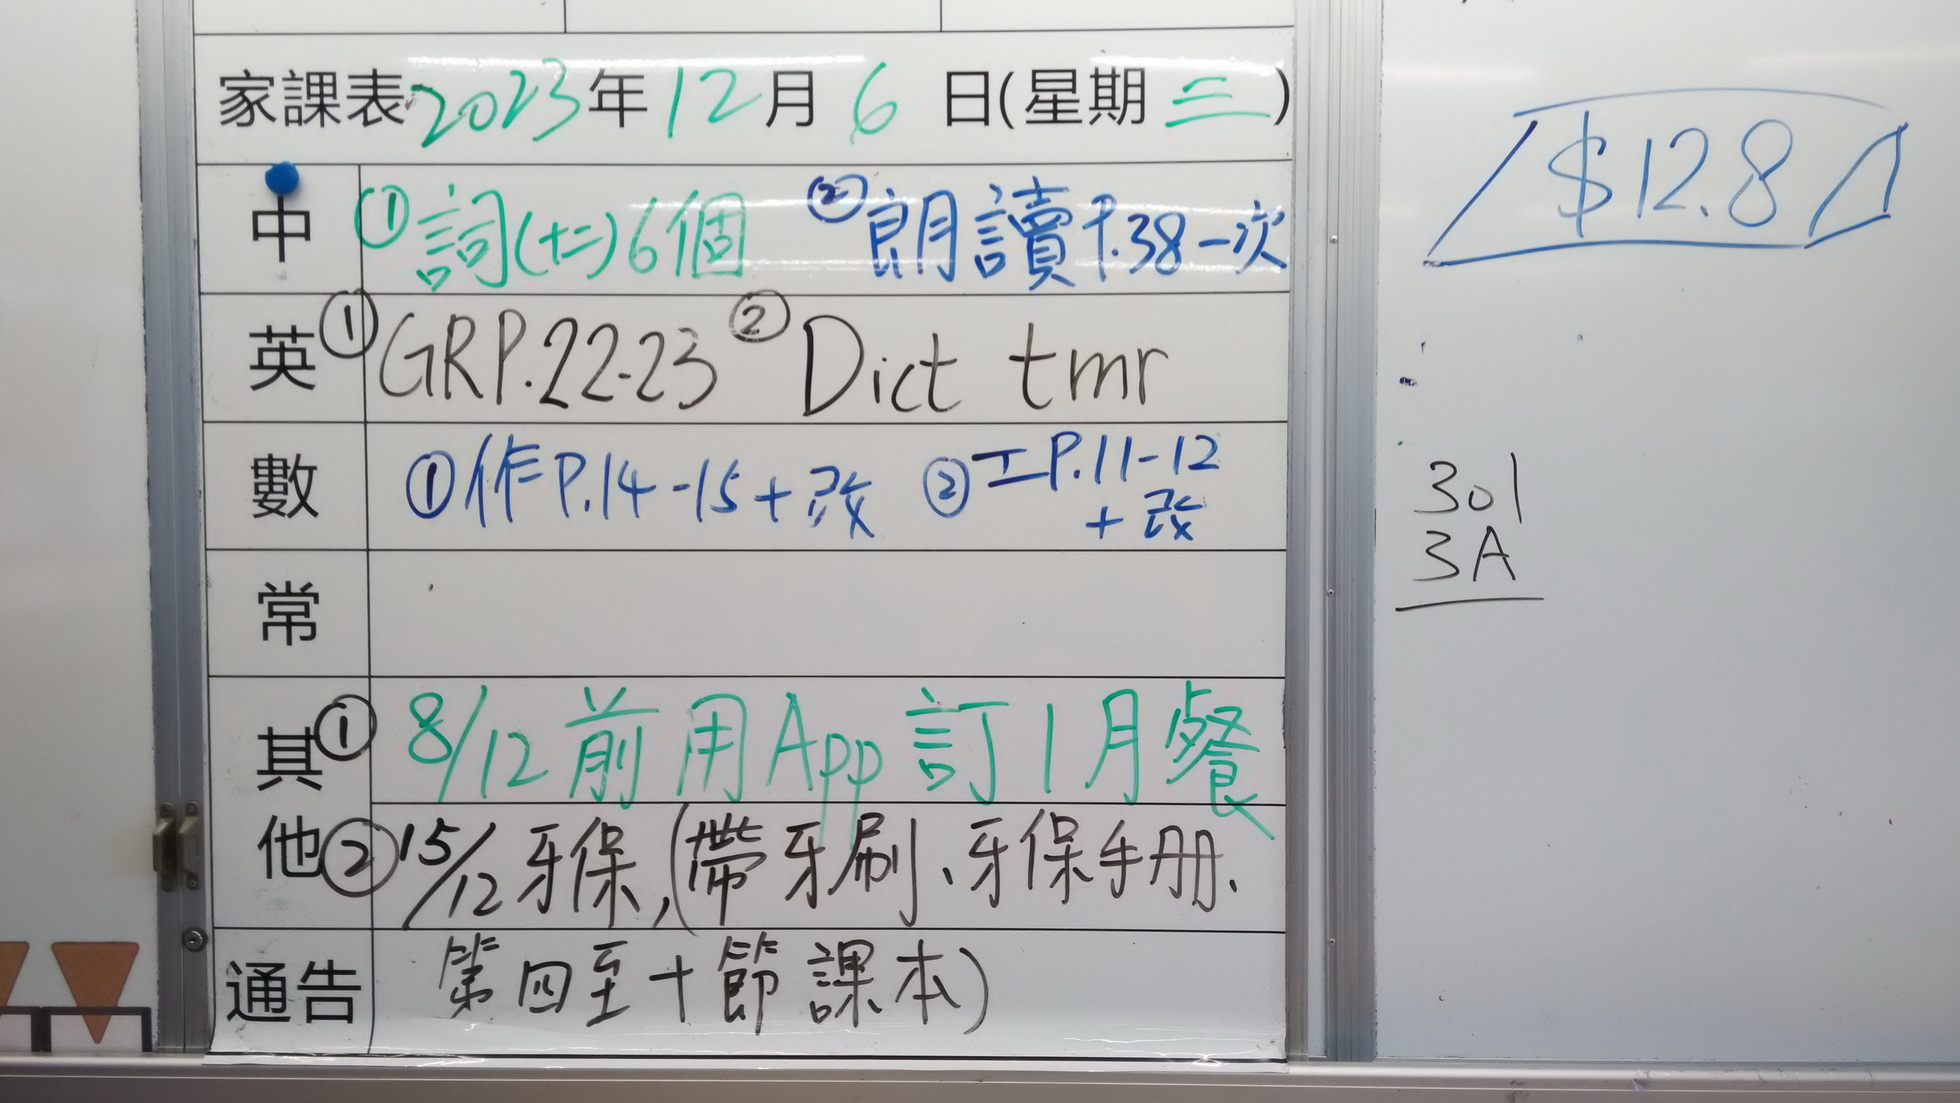 家課表 2023年12月6日(星期三)
中 ①詞(十二)6個 ②朗讀P.38一次
英 ①GRP.22-23 ②Dict tmr
數 ①作P.14-15+改 ②工P.11-12
+改
常
其他 ①8/12前用App訂1月餐
②15/12牙保,(帶牙刷、牙保手册、
通告 第四至十節課本)
$12.8
301
3A